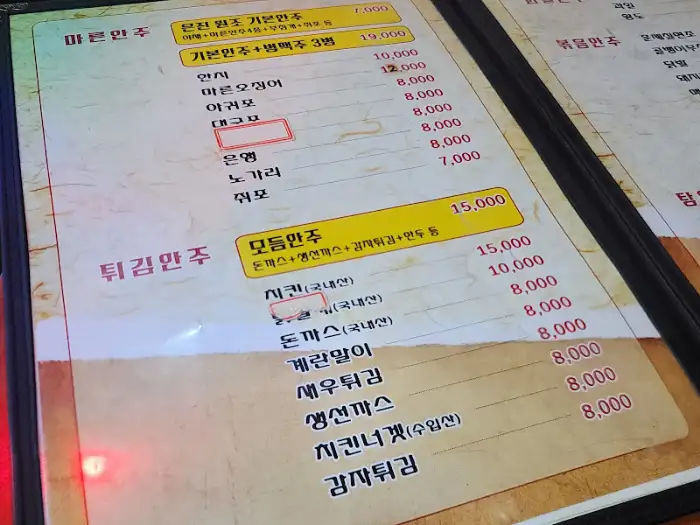 마른안주
은진 원조 기본안주 7,000
야채+마른안주4종+부침개+쥐포 등
기본안주+병맥주 3병 19,000
한치 10,000
마른오징어 12,000
아귀포 8,000
대구포 8,000
8,000
은행 8,000
노가리 8,000
쥐포 7,000
튀김안주
모듬안주 15,000
돈까스+생선까스+감자튀김+만두 등
치킨(국내산) 15,000
(국내산) 10,000
돈까스(국내산) 8,000
계란말이 8,000
새우튀김 8,000
생선까스 8,000
치킨너겟(수입산) 8,000
감자튀김 8,000
과일
볶음안주
골뱅이
닭발
탕